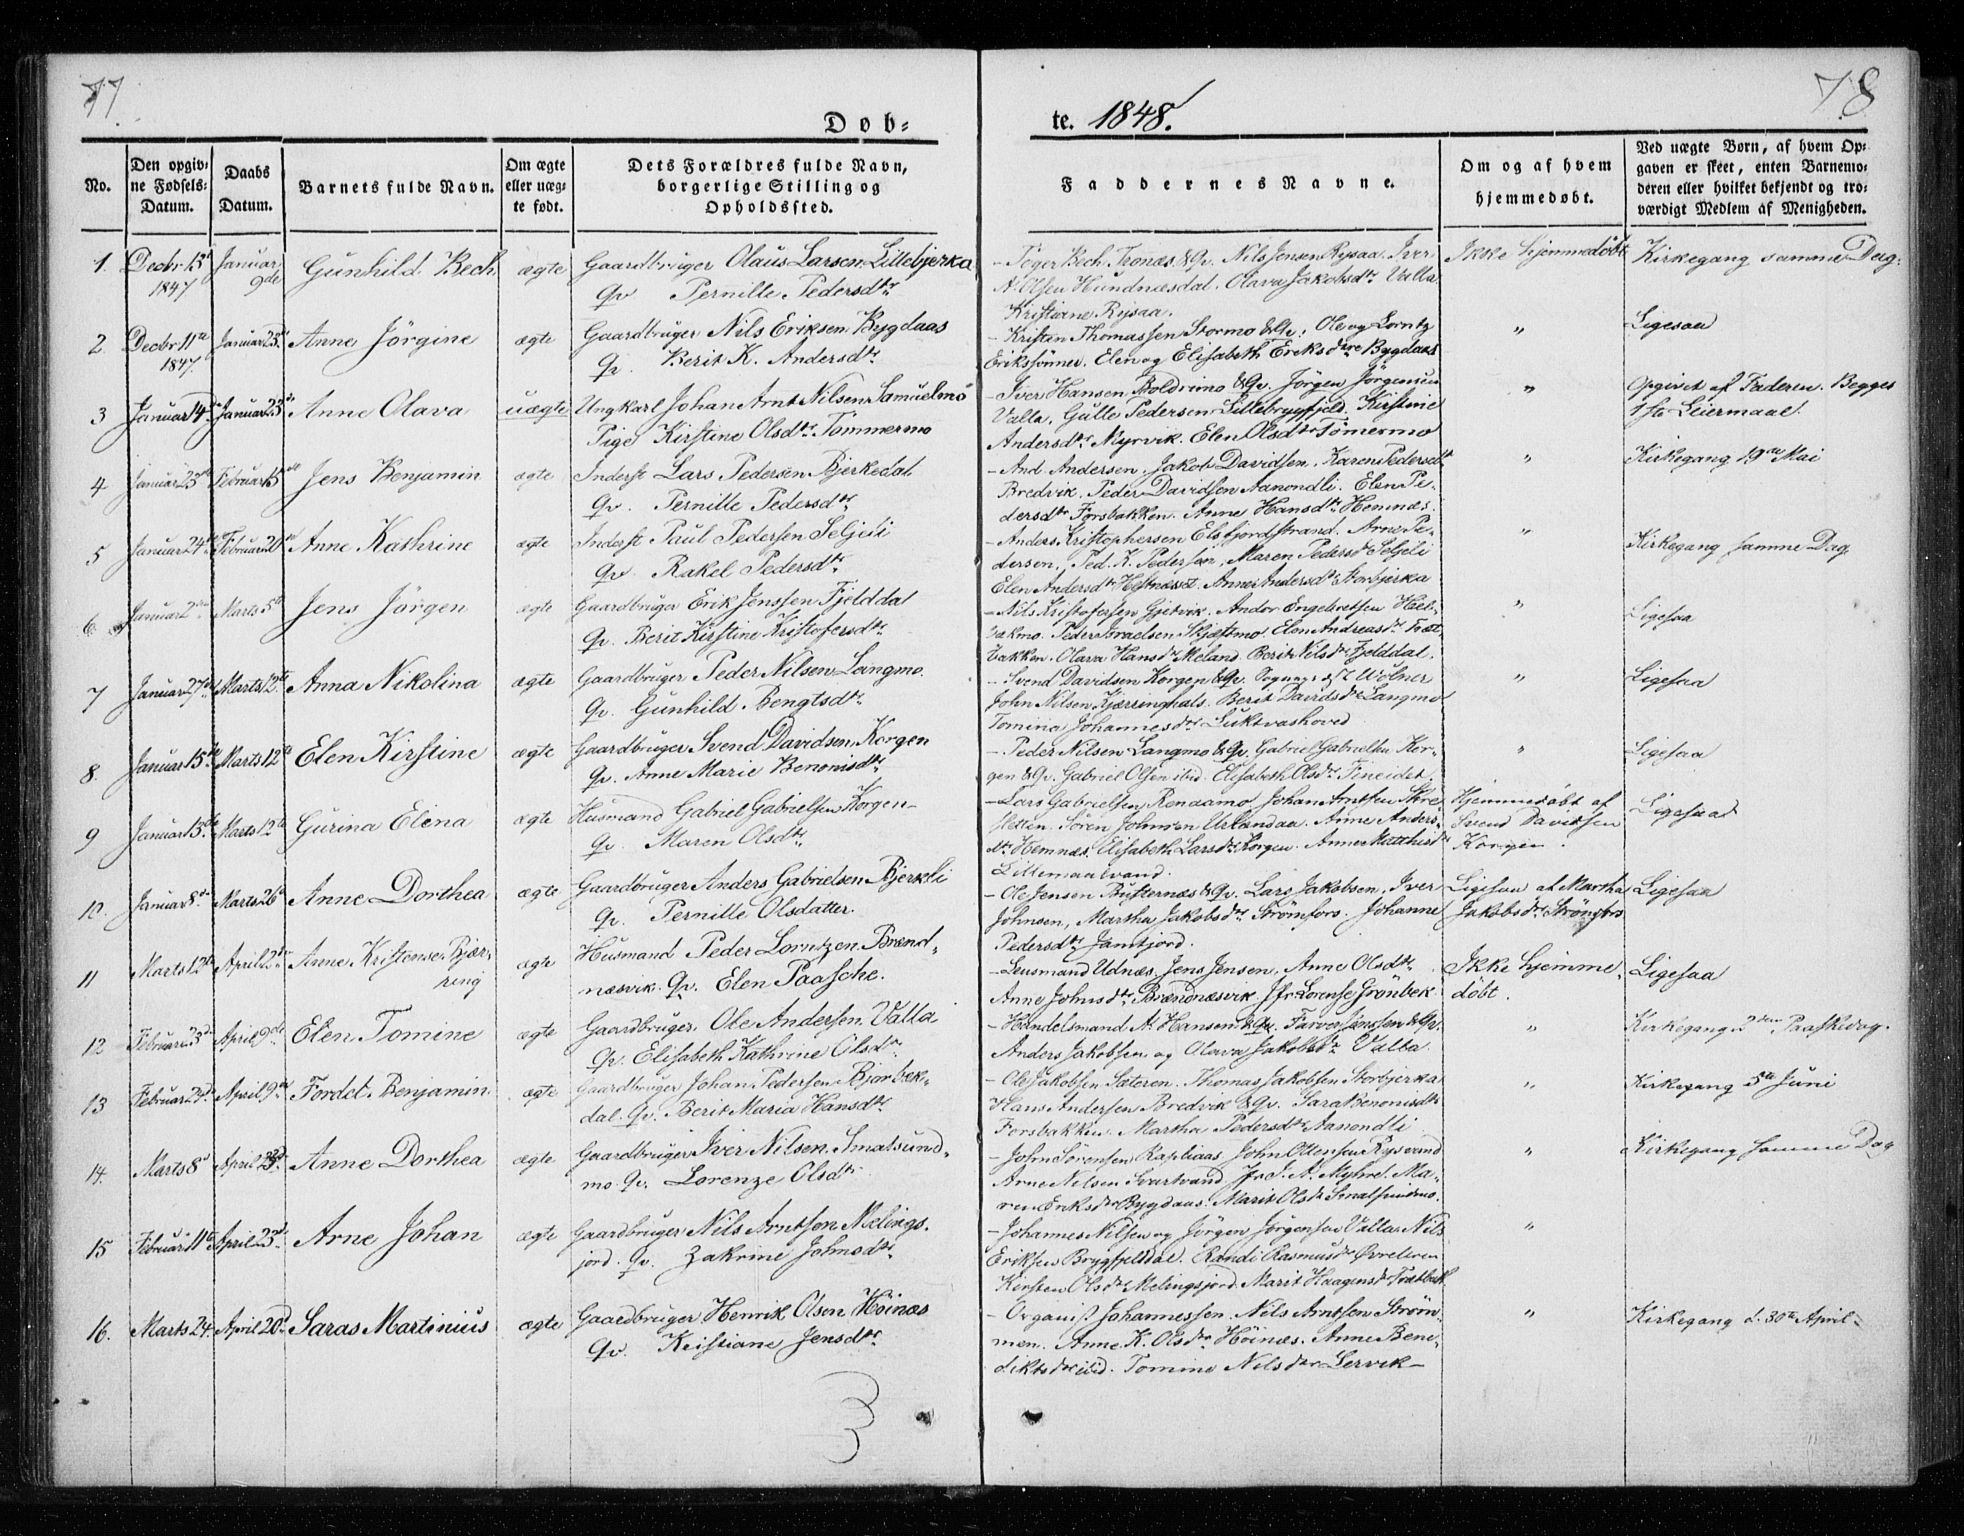 77.
78
Döb=
te. 1848.
No.
Den opgiv=
ne Fødsels=
Datum.
Daabs
Datum.
Barnets fulde Navn.
Om ægte
eller uæg=
te født.
Dets Forældres fulde Navn,
borgerlige Stilling og
Opholdssted.
Faddernes Navne.
Om og af hvem
hjemmedøbt.
Ved uægte Børn, af hvem Op=
gaven er skeet, enten Barnemo=
deren eller hvilket bekjendt og tro=
værdigt Medlem af Menigheden.
1. Decbr 13de 1847 Januar 9de Gunhild Bech ægte
Gaardbruger Olaus Larsen Lillebjerka
Qv Pernille Pedersdtr
- Toger Bech Tronæs &Qv. Nils Jensen Rysaa. Iver
A. Olsen Hundnæsdal. Olava Jakobsdtr Valla
Kristiane Rysaa.
Ikke hjemmedøbt
Kirkegang samme Dag.
2 Decbr 11te 1847. Januar 23de Anne Jörgine ægte
Gaardbruger Nils Eriksen Bygdaas
Qv. Berit K. Andersdtr
- Kristen Thomassen Stormo &Qv. Ole og Lorntz
Erikssönner. Elen og Elisabeth Eriksdtre Bygdaas
"
Ligesaa
3 Januar 4de Januar 23de Anne Olava uægte
Ungkarl Johan Arnt Nilsen Samuelmo
Pige Kirstine Olsdtr Tömmermo
- Iver Hansen Boldrimo &Qv. Jörgen Jörgensen
Valla, Gulle Pedersen Lillebrygfjeld. Kirstine
Andersdtr Myrvik. Elen Olsdtr Tömermo
"
Opgivet af Faderen. Begges
1ste Leiermaal.
4 Januar 23de Februar 15de Jens Benjamin ægte
Inderst Lars Pedersen Bjerkedal
Qv. Pernille Pedersdtr
- And. Andersen. Jakob Davidsen. Karen Pedersdtr
Bredvik. Peder Davidsen Aanondli. Elen Pe-
dersdtr Forsbakken. Anne Hansdtr Hemnæs.
"
Kirkegang 19de Mai
5 Januar 24de Februar 20de Anne Kathrine ægte
Inderst Paul Pedersen Seljeli
Qv. Rakel Pedersdtr
- Anders Kristophersen Elsfjordstrand. Arne Pe-
dersen, Ped. K. Pedersen, Maren Pedersdtr Seljeli
Elen Andersdtr Hestnæsset. Anne Andersdtr Storbjerka
"
Kirkegang samme Dag
6 Januar 2den Marts 5te Jens Jörgen ægte
Gaardbruger Erik Jenssen Fjelddal
Qv. Berit Kirstine Kristofersdtr
- Nils Kristofersen Gjetvik. Andor Engebretsen
Peder Israelsen Skjæstmo. Elen Andreasdtr Træt
bakken. Olava Hansdtr Meland. Berit Nilsdtr Fjelddal.
"
Ligesaa
7 Januar 27de Marts 12te Anna Nikolina ægte
Gaardbruger Peder Nilsen Langmo
Qv. Gunhild Bengtsdtr
- Svend Davidsen Korgen &Qv. Wolner
John Nilsen Kjærringhals. Berit Davidsdtr Langmo
Tomina Johannesdtr Luktvashoved
"
Ligesaa
8. Januar 15de Marts 12te Elen Kirstine ægte
Gaardbruger Svend Davidsen Korgen
Qv. Anne Marie Benonisdtr
- Peder Nilsen Langmo &Qv. Gabriel Gabrielsen Kor-
gen &Qv. Gabriel Olsen ibid. Elisabeth Olsdtr Fineidet.
"
Ligesaa
9 Januar 13de Marts 12te Gurina Elena ægte
Husmand Gabriel Gabrielsen Korgen-
Qv. Maren Olsdtr
- Lars Gabrielsen Renaamo Johan Arntsen Skre-
sletten. Sören Johnsen Urlandaa. Anne Anders-
dtr Hemnæs. Elisabeth Larsdtr Korgen. Anne Matthisdtr
Lillemaalvand.
Hjemmedøbt af
Svend Davidsen
Korgen.
Ligesaa
10. Januar 8de Marts 26de Anne Dorthea ægte
Gaardbruger Anders Gabrielsen Bjerkeli
Qv. Pernille Olsdatter.
- Ole Jensen Bulternæs &Qv. Lars Jakobsen. Iver
Johnsen, Martha Jakobsdtr Strömfors. Johanne
Pedersdtr Jamtjord.
Ligesaa af Martha
Jakobsdtr Strömfors
Ligesaa
11 Marts 12te April 2den Anne Kristense Bjær-
ring ægte
Husmand Peder Lorntzen Brænd-
næsvik. Qv. Elen Paasche.
- Lensmand Udnæs, Jens Jensen, Anne Olsdtr
Anne Johnsdtr Brændnæsvik. Jfr Lorense Grönbek
Ikke hjemme-
döbt.
Ligesaa
12 Februar 3de April 9de Elen Tomine ægte
Gaardbruger. Ole Andersen Valla
Qv. Elisabeth Kathrine Olsdtr
- Handelsmand A. Hansen &Qv. Farver Janssen &Qv.
Anders Jakobsen og Olava Jakobsdtr Valla.
"
Kirkegang 2den Paaskedag.
13 Februar 23de April 9de Fordel Benjamin. ægte
Gaardbruger Johan Pedersen Bjorbek-
dal Qv. Berit Maria Hansdtr
- Ole Jakobsen Sæteren. Thomas Jakobsen Storbjerka
Hans Andersen Bredvik &Qv. Sara Benonisdtr
Forsbakken. Martha Pedersdtr Aanondli
"
Kirkegang 5te Juni
14. Marts 8de April 23de Anne Dorthea ægte
Gaardbruger Iver Nilsen. Smalsund-
mo. Qv. Lorenze Olsdtr
- John Sörensen Rapliaas. John Ottensen Rysvand
Arne Nilsen Svartvand Jfr J. A. Myhre. Ma-
ren Eriksdtr Bygdaas. Marit Olsdtr Smalsundmo.
"
Kirkegang samme Dag
15 Februar 11te April 23de Arne Johan ægte
Gaardbruger Nils Arntsen Melings-
jord. Qv. Zakrine Johnsdtr
- Johannes Nilsen og Jörgen Jörgensen Valla. Nils
Eriksen Brygfjelddal. Randi Rasmusdtr Övreleren
Kirsten Olsdtr Melingsjord. Marit Haagensdtr Trætbak
"
16. Marts 24. April 20de Saras Martinius ægte
Gaardbruger Henrik Olsen Höinæs
Qv. Kristiane Jensdtr
- Organist Johannessen. Nils Arntsen Ström-
men. Anne K. Olsdtr Höinæs. Anne Bene-
diktsdtr ibid. Tomine Nilsdtr Lervik-
"
Kirkegang d. 30te April.